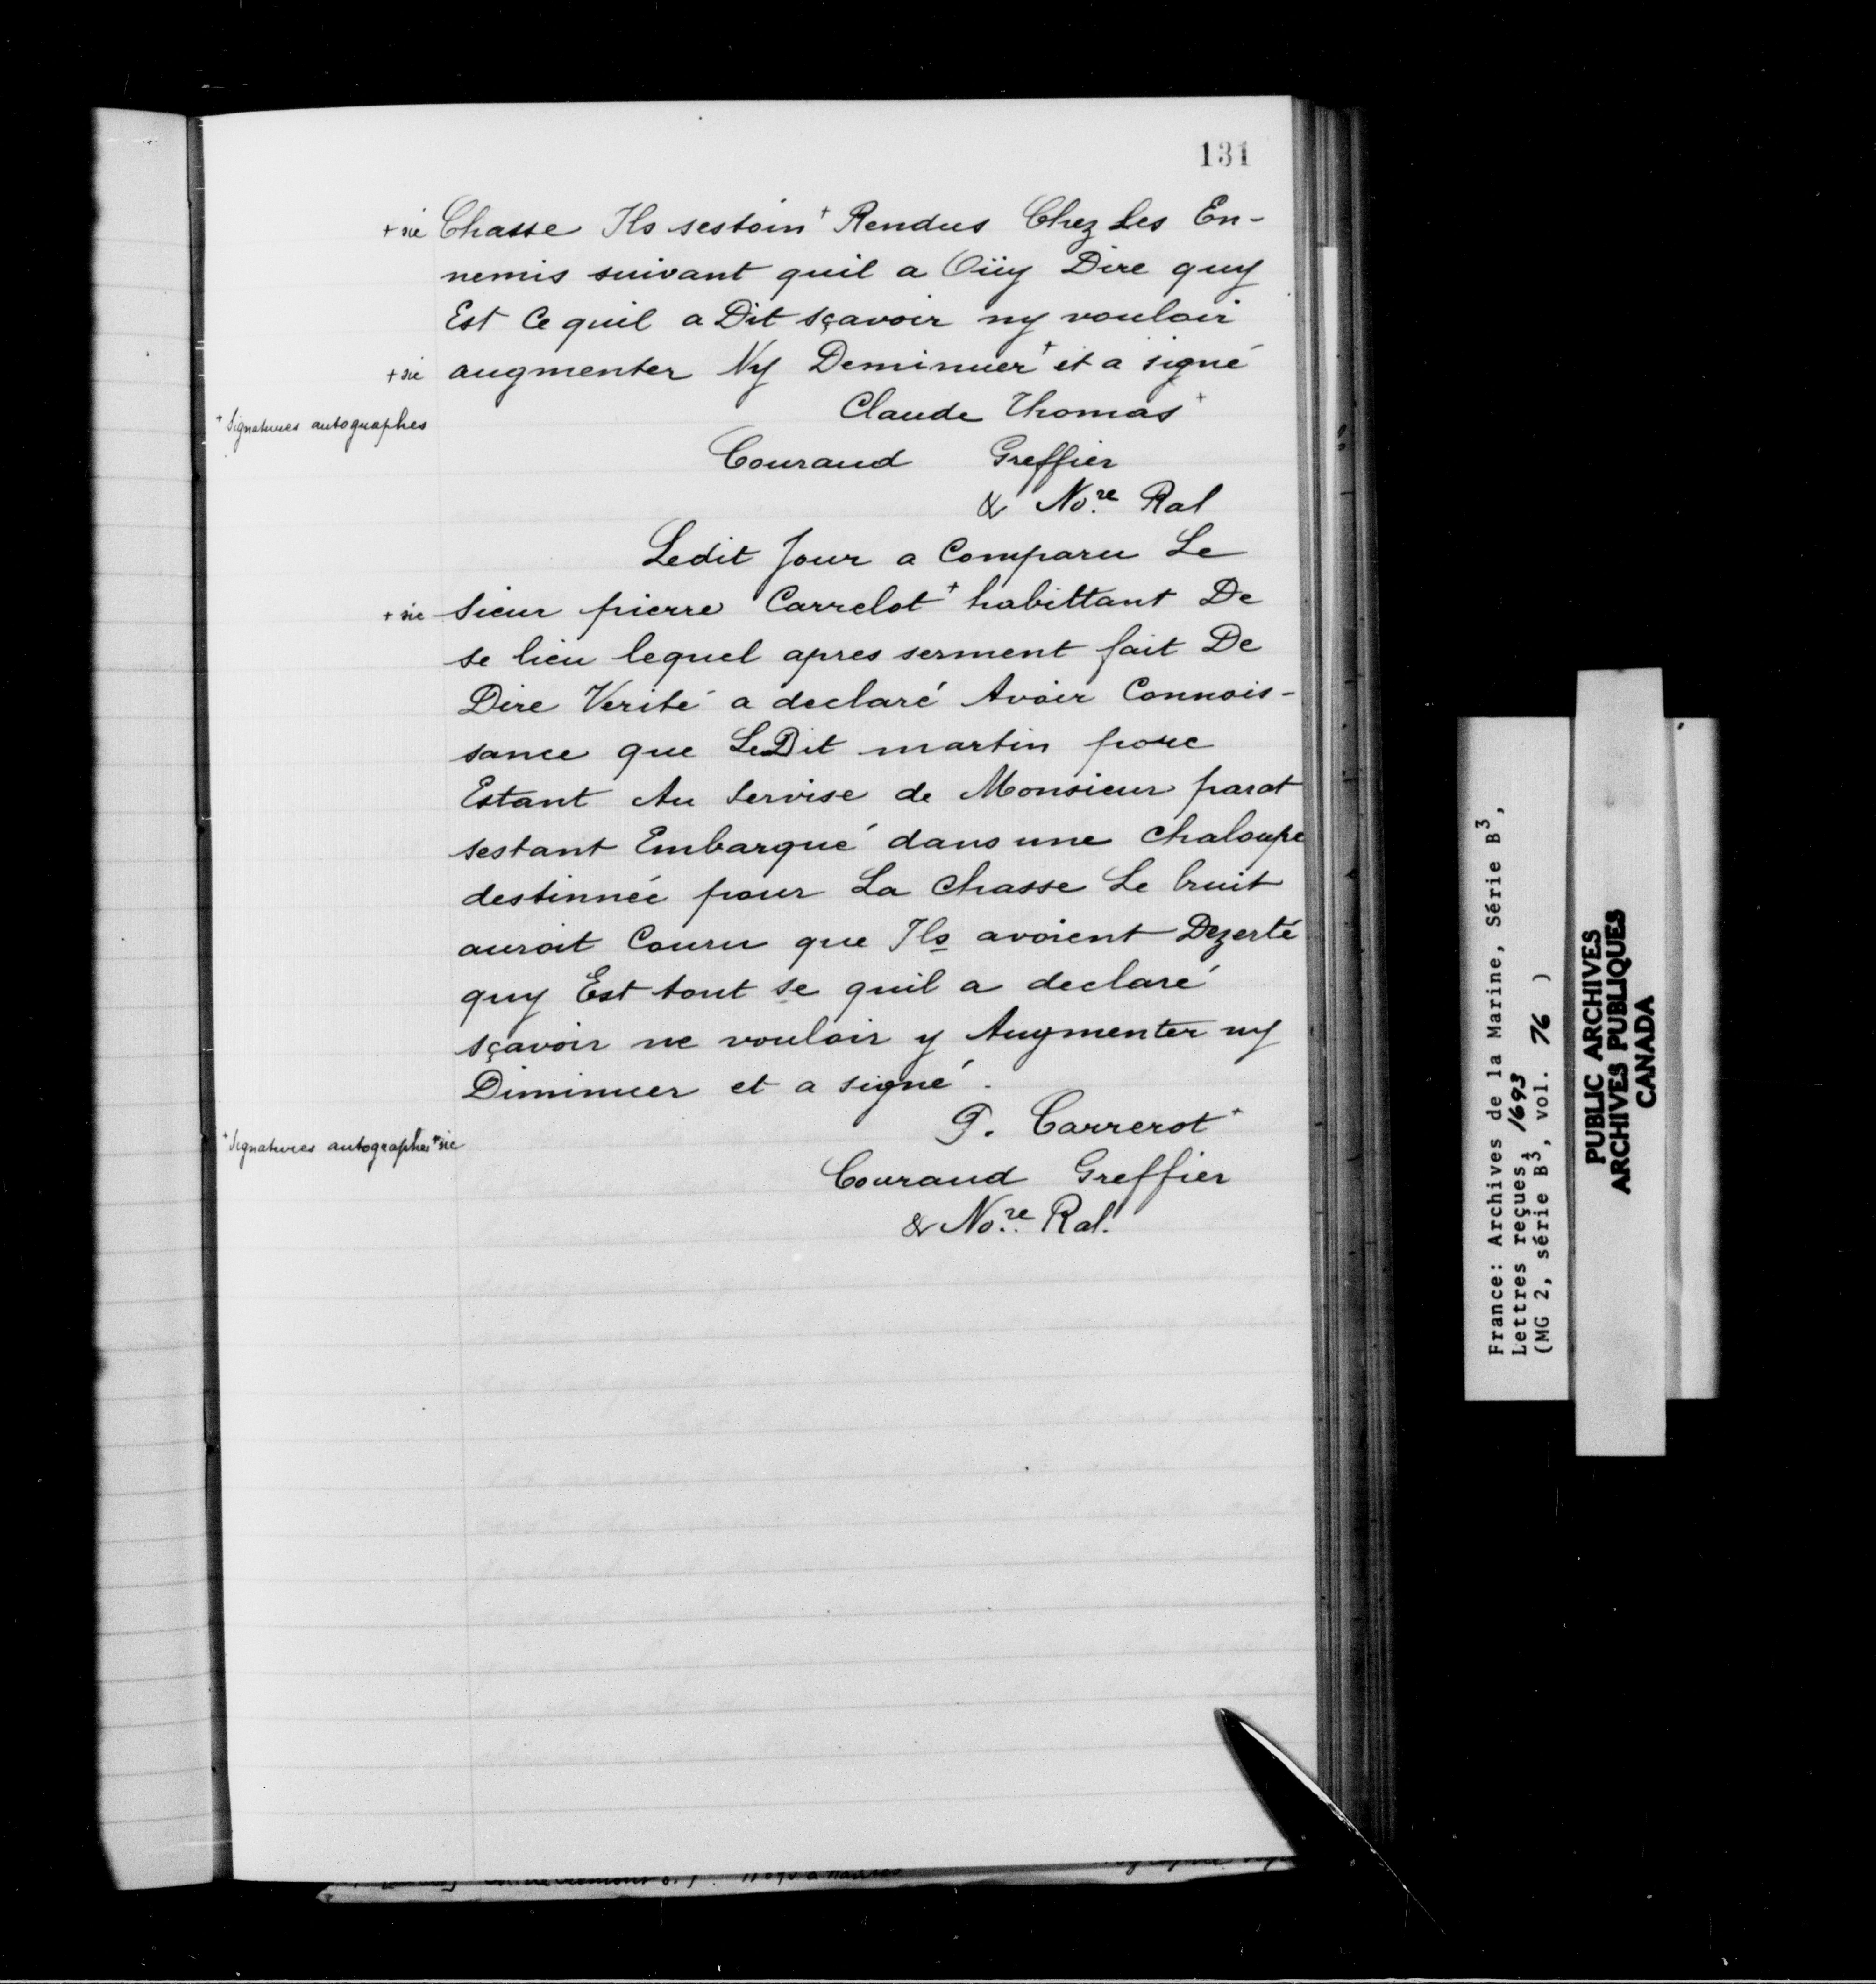 131
+ sic Chasse Ils sestoin + Rendus Chez Les En-
nemis suivant quil a Oüy Dire quy
Est Ce quil a Dit sçavoir ny vouloir
+ sic augmenter Ny Deminuer + et a signé
Claude Thomas +
+ Signatures autographes
Couraud Greffier
& No.re Ral
Ledit Jour a Comparu Le
+ sic sieur pierre Carrelot + habittant De
se lieu lequel apres serment fait De
Dire Verité a declaré Avoir Connois-
sance que LeDit martin
Estant Au Servise de Monsieur parat
sestant Embarqué dans une Chaloupe
destinnée pour La Chasse Le bruit
auroit Couru que Ils avoient Dezerté
quy Est tout se quil a declaré
sçavoir ne vouloir y Augmenter ny
Diminuer et a signé.
P. Carrerot +
+ Signatures autographes + sic
Couraud Greffier
& No.re Ral.
France: Archives de la Marine, Série B3,
Lettres reçues, 1693
(MG 2, série B3, vol. 76 )
PUBLIC ARCHIVES
ARCHIVES PUBLIQUES
CANADA